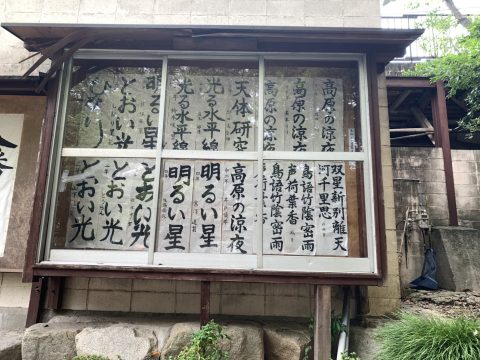 高原の涼夜
高原の涼夜
高原の涼夜
天体研究
光る水平線
光る水平線
明るい星
とおい光
双星新別離天
河千里思
鳥語竹陰密雨
声荷葉香
鳥語竹陰密雨
高原の涼夜
明るい星
明るい星
とおい光
とおい光
とおい光